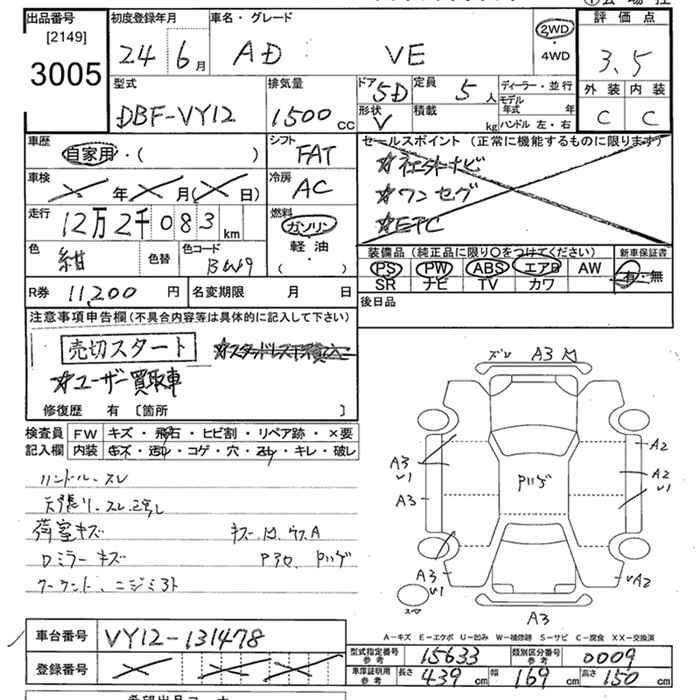 出品番号
[2149]
3005
初度登録年月
24 6月
車名・グレード
AD VE
2WD
・
4WD
評価点
3.5
外装 内装
C C
型式
DBF-VY12
排気量
1500 CC
ドア 5D
形状 V
定員 5人
積載 kg
ディーラー・並行
モデル年式 年
ハンドル 左・右
車歴
自家用・( )
シフト
FAT
セールスポイント (正常に機能するものに限ります)
ナビ
☆ワンセグ
☆ETC
車検
年 月( 日)
冷房
AC
走行
12万2千083km
燃料
ガソリン
軽油
( ・ )
色
紺
色替
色コード
BW9
装備品 (純正品に限り○をつけてください)
PS PW ABS エアB AW
SR ナビ TV カワ
新車保証書
有・無
R券 11,200円
名変期限 月 日
後日品
注意事項申告欄(不具合内容等は具体的に記入して下さい)
売切スタート
☆ユーザー買取車
修復歴 有 〔箇所 〕
検査員
記入欄
FW キズ・飛石・ヒビ割・リペア跡・×要
内装 キズ・汚レ・コゲ・穴・スレ・キレ・破レ
ハンドル・スレ
天張り・スレ・ヨゴレ
荷室キズ
Dミラーキズ
A3
A2
A3
U1
A2
U1
A3
A3
U1
A2
A3
A-キズ E-エクボ U-凹み W-補修跡 S-サビ C-腐食 XX-交換済
車台番号 VY12-131478
登録番号
型式指定番号
参考
15633
類別区分番号
参考
0009
車庫証明用
参考
長さ 439cm 幅 169cm 高さ 150cm